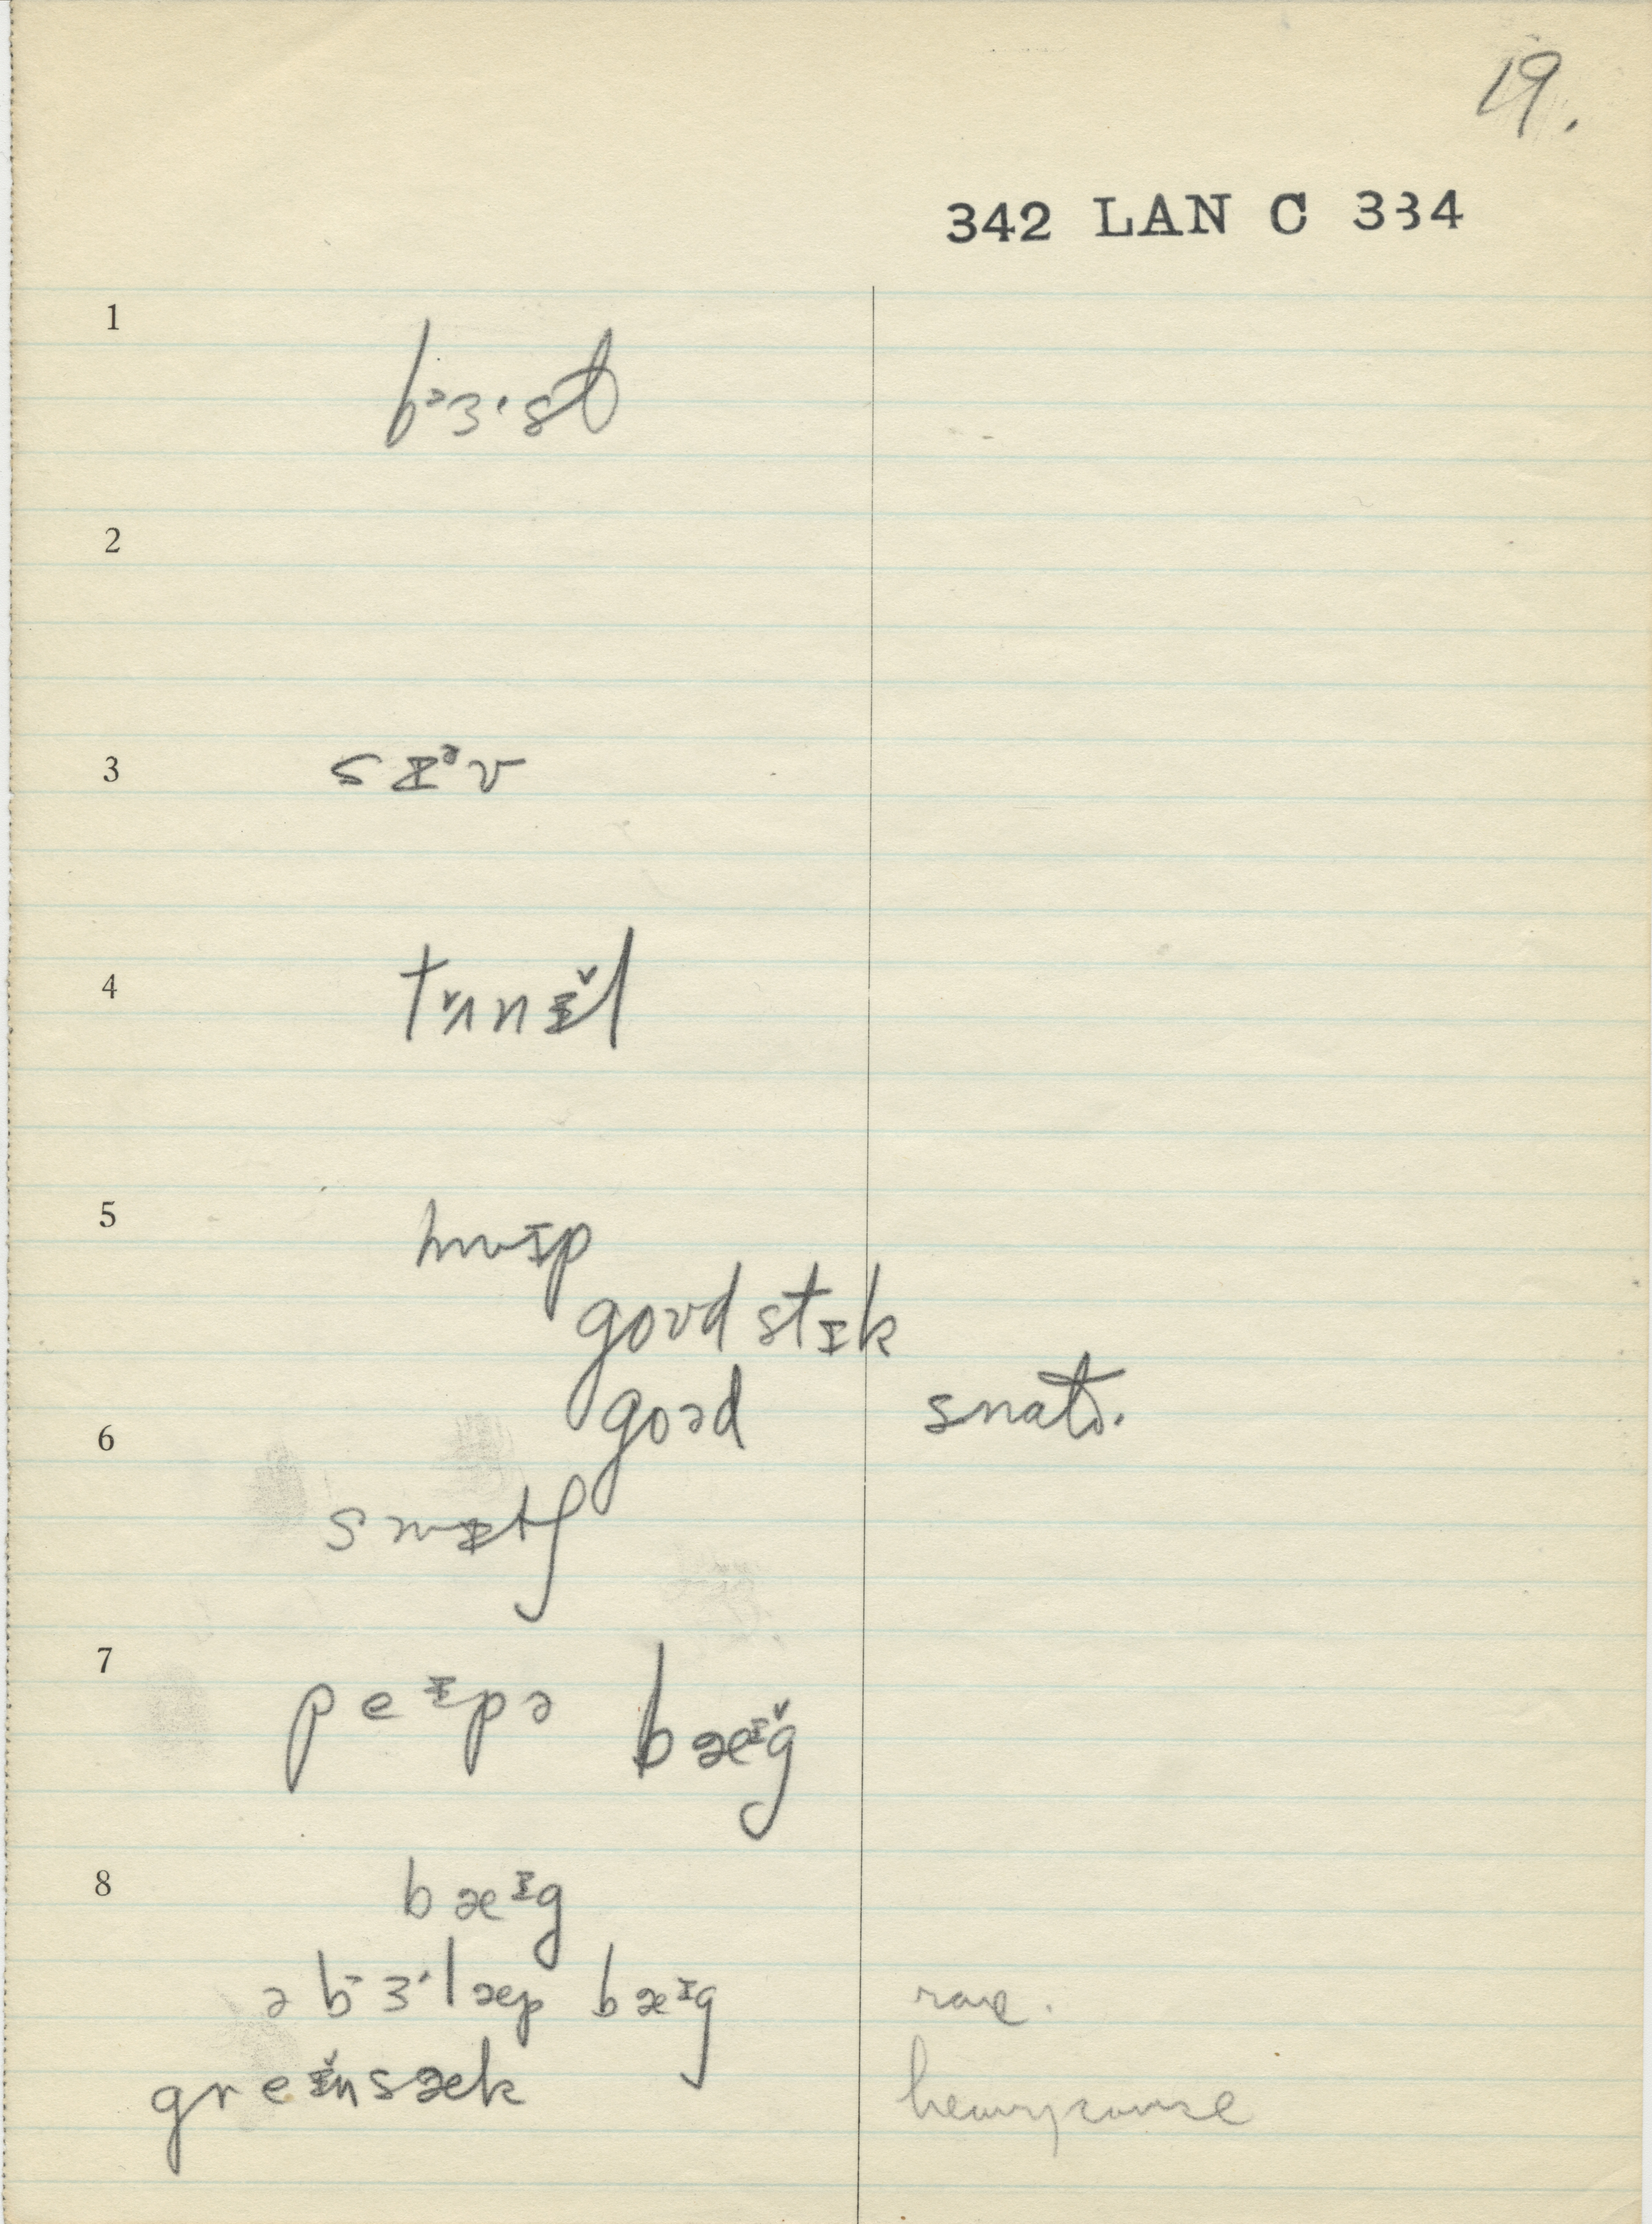 19.
342 LAN C 334
1
bᵊɜ·st
2
3
sɪᵊv
4
tʌ̌nɪ̌l
5
hwɪp
goʊd stɪk
goəd snats.
6
swɪtʃ
7
peɪpə bæᶦ̌g
8
bæᶦg
ə bɜ·læp bæᶦg rare.
greɪ̌nsæk heavy